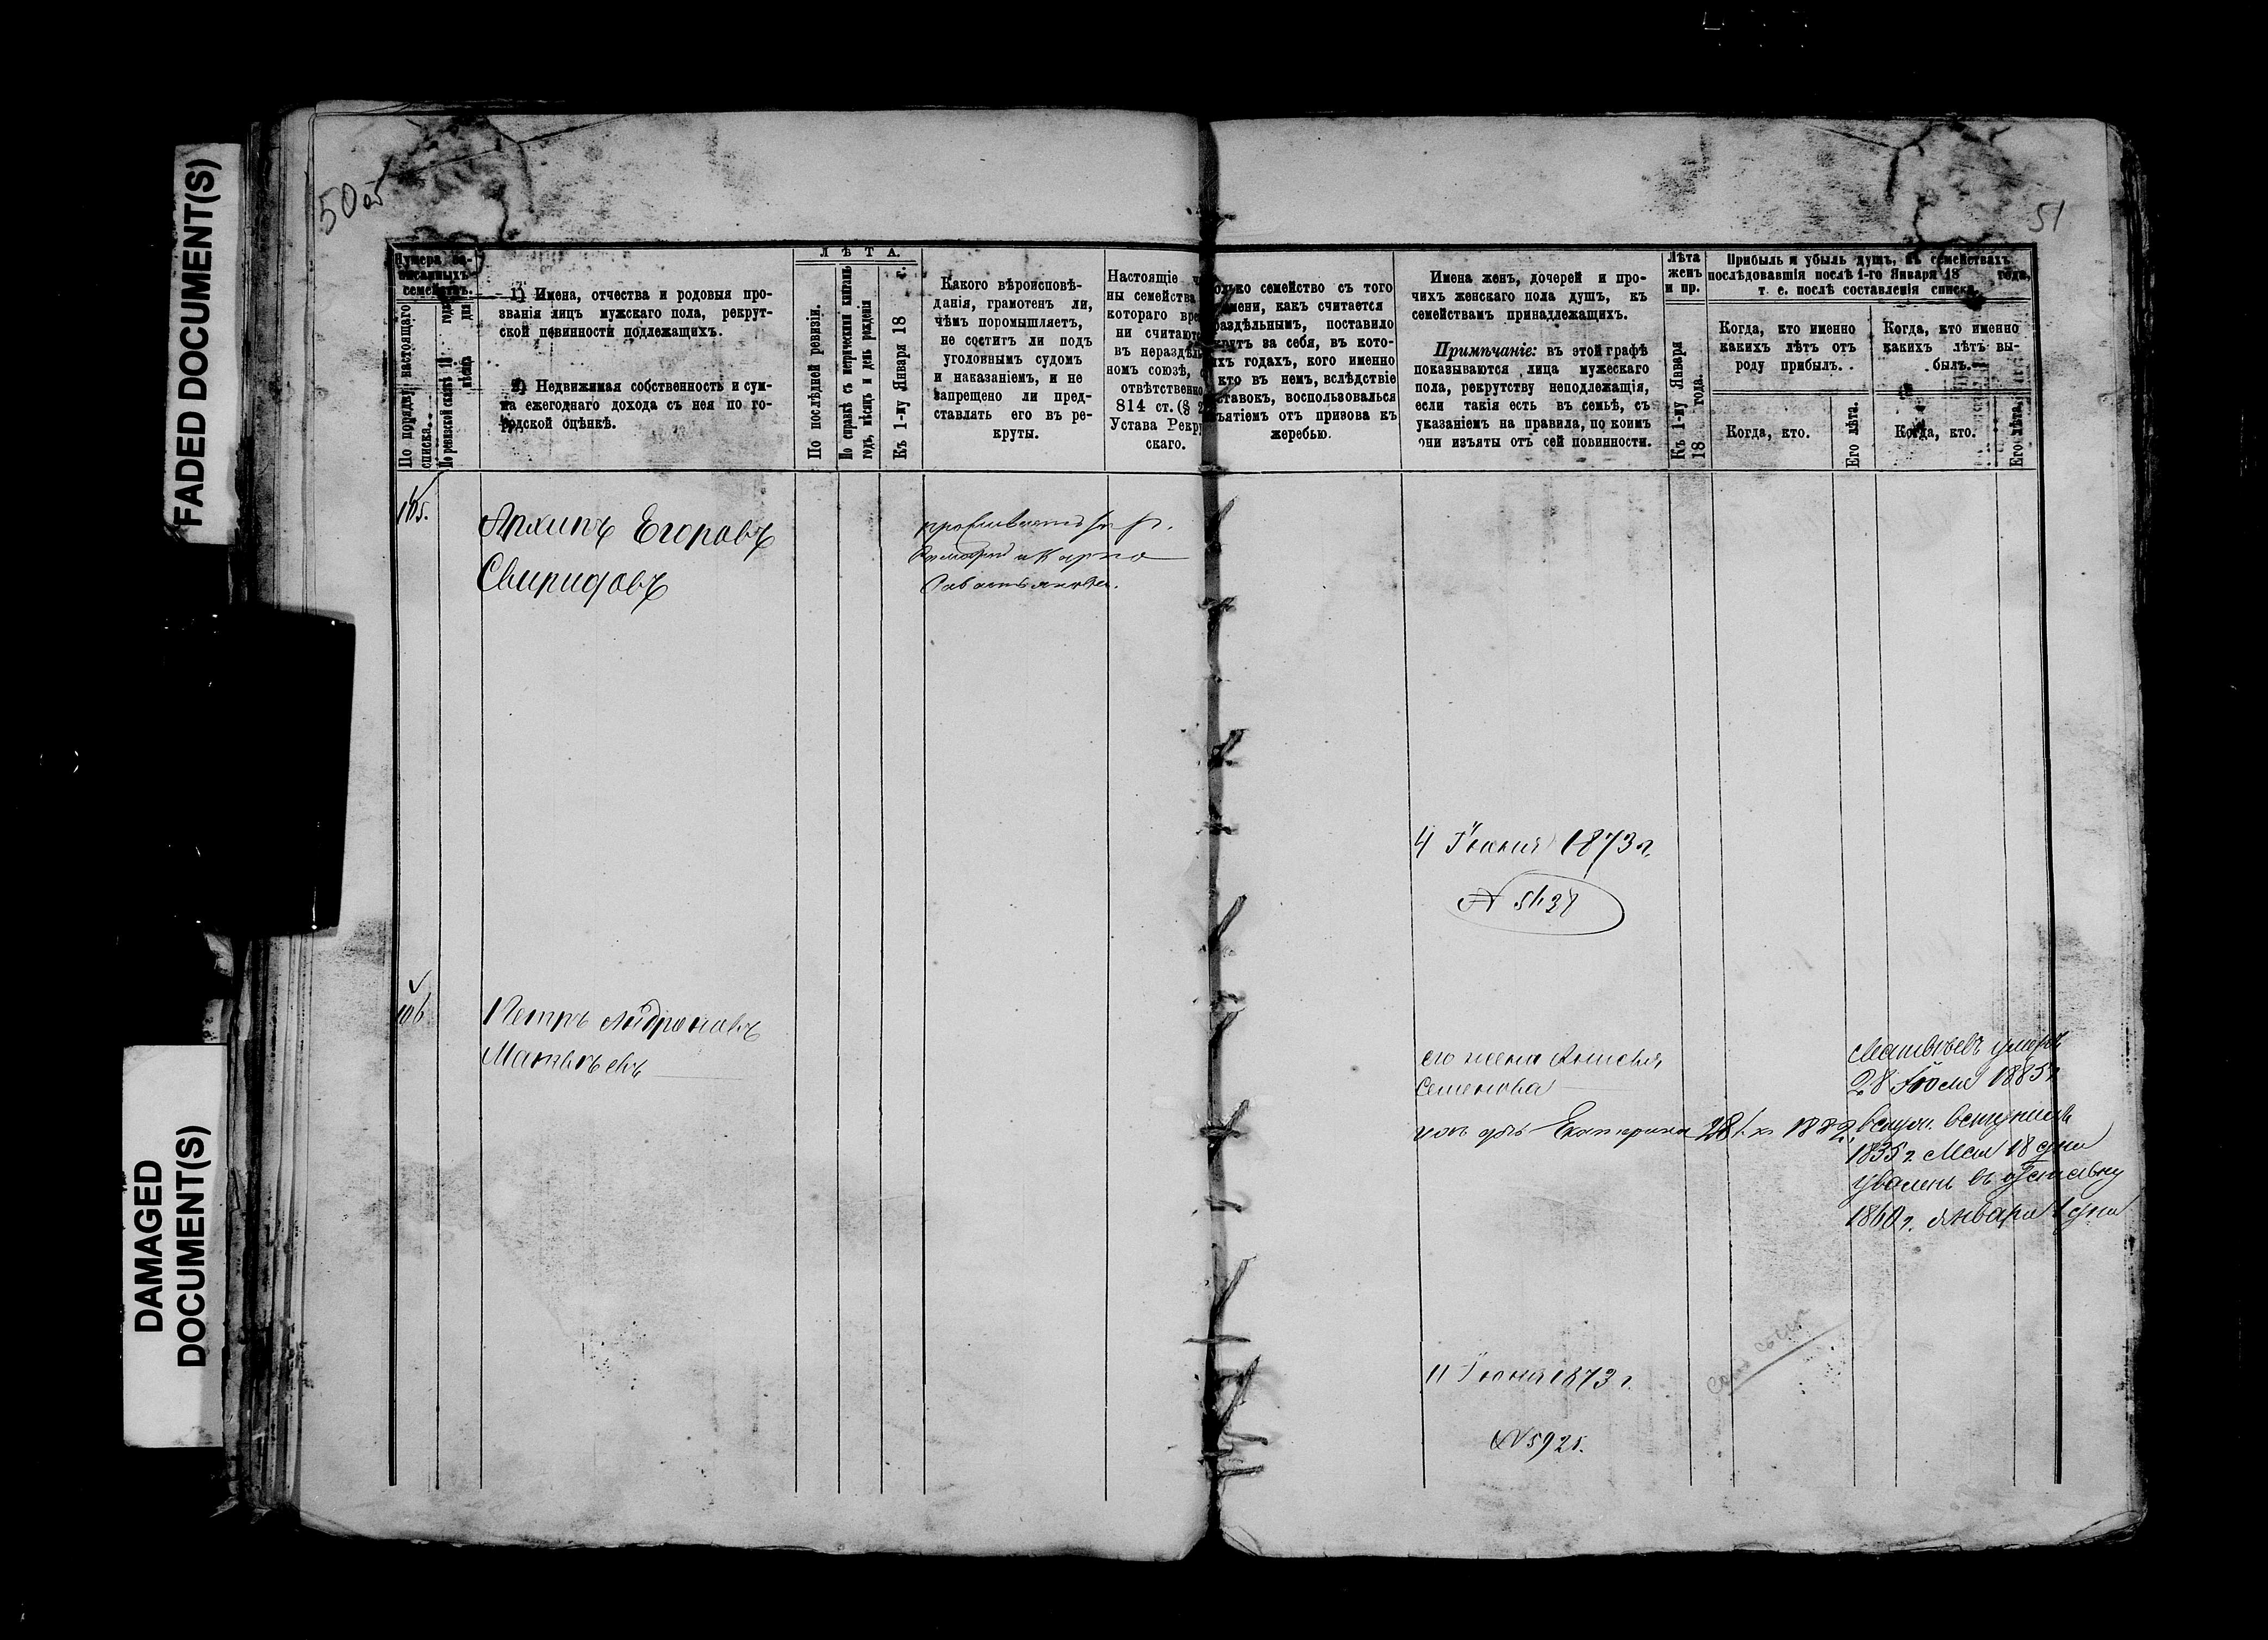 FADED DOCUMENT(S)
DAMAGED
DOCUMENT(S)
50 об
51
Нумера за-
писанныхъ
семействъ.
По порядку настоящаго
списка.
По ревизской сказкѣ 18 года
мѣсяца дня
1) Имена, отчества и родовыя про-
званія лицъ мужскаго пола, рекрут-
ской повинности подлежащихъ.
2) Недвижимая собственность и сум-
ма ежегоднаго дохода съ нея по го-
родской оцѣнкѣ.
ЛѢТА.
По послѣдней ревизіи.
По справкѣ съ метрическими книгами
годъ, мѣсяцъ и день рожденія
Къ 1-му Января 18 г.
Какого вѣроисповѣ-
данія, грамотенъ ли,
чѣмъ поромышляетъ,
не соститъ ли подъ
уголовнымъ судомъ
и наказаніемъ, и не
запрещено ли пред-
ставлять его въ ре-
круты.
Настоящіе
ны семейства
котораго вре
ни считают
въ нераздѣл
номъ союзѣ,
отвѣтственно
814 ст. (§ 2
Устава Рекру
скаго.
олько семейство съ того
мени, какъ считается
раздѣльнымъ, поставило
крутъ за себя, въ кото-
хъ годахъ, кого именно
кто въ немъ, вслѣдствіе
ставокъ, воспользовался
ъятіемъ отъ призова къ
жеребью.
Имена женъ, дочерей и про-
чихъ женскаго пола душъ, къ
семействамъ принадлежащихъ.
Примѣчаніе: въ этой графѣ
показываются лица мужескаго
пола, рекрутству неподлежащія,
если такія есть въ семьѣ, съ
указаніемъ на правила, по коимъ
они изъяты отъ сей повинности.
Лѣта
женъ
и пр.
Къ 1-му Января
18 года.
Прибыль и убыль душъ, въ семействахъ
послѣдовавшія послѣ 1-го Января 18 года,
т. е. послѣ составленія списка.
Когда, кто именно
какихъ лѣтъ отъ
роду прибылъ.
Когда, кто.
Его лѣта.
Когда, кто именно
какихъ лѣтъ вы-
былъ.
Когда, кто.
Его лѣта.
105.
Архипъ Егоровъ
Свиридовъ
проживаетъ
и Карпа
Савостьянова.
4 Іюня 1873 г.
№ 5437
106
Петръ Андроновъ
Матвѣевъ
его жена Анисья
Семенова
дочь Екатерина 28 1882
Матвѣевъ умеръ
28 Іюля 1885 г.
вступилъ
1835 г. Мая 18 дня
уволенъ въ отставку
1860 г. января 1 дня
11 Іюня 1873 г.
№ 5925.